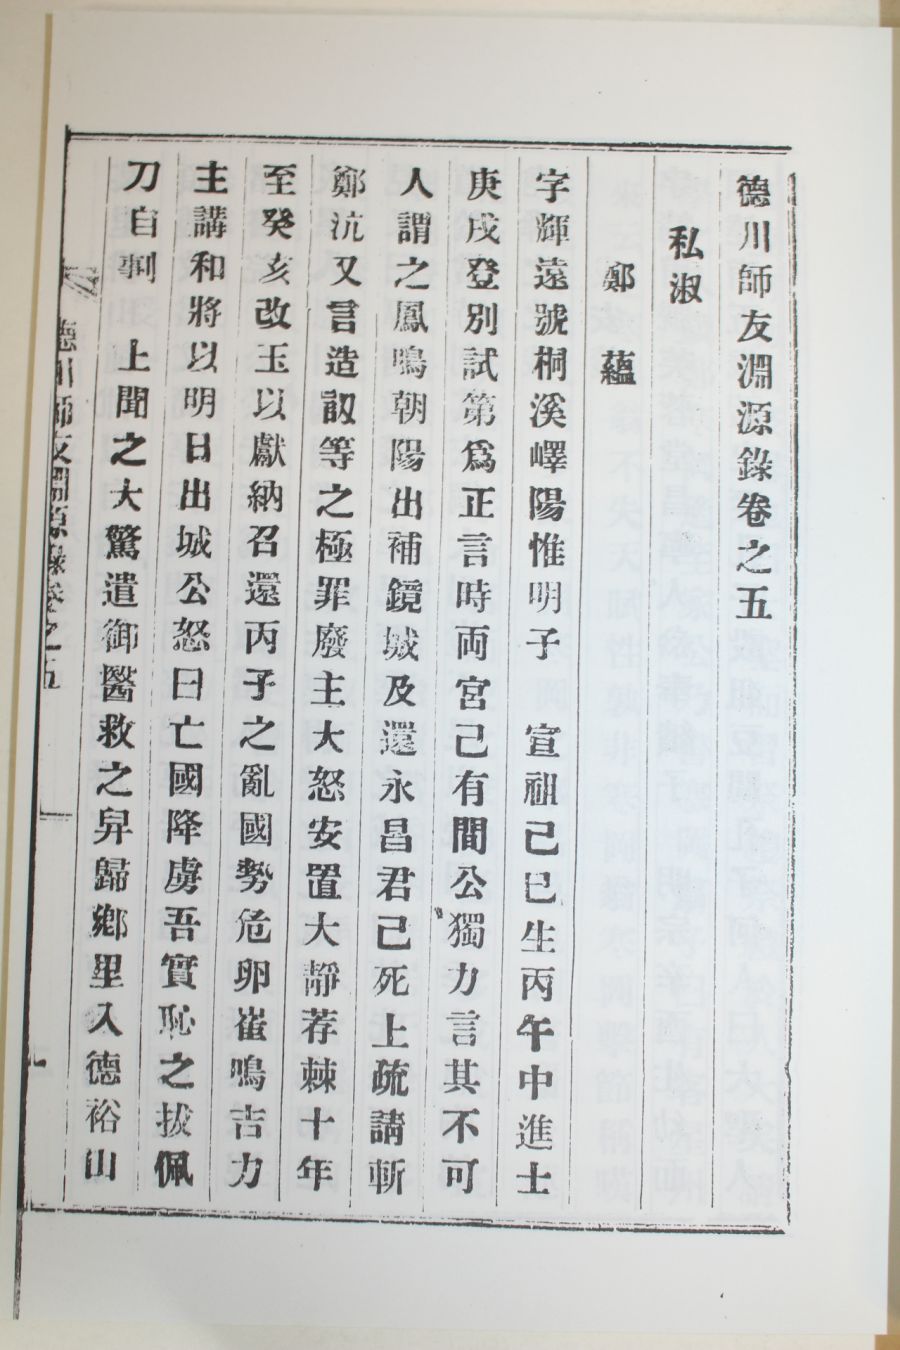 德川師友淵源錄卷之五
私淑
鄭蘊
字輝遠號桐溪嶧陽惟明子　宣祖己巳生丙午中進士
庚戌登別試第爲正言時両宮己有間公獨力言其不可
人謂之鳳鳴朝陽出補鏡城及還永昌君己死上疏請斬
鄭沆又言造訒等之極罪廢主大怒安置大靜荐棘十年
至癸亥改玉以獻納召還丙子之亂國勢危卵崔鳴吉力
主講和將以明日出城公怒曰亡國降虜吾實恥之拔佩
刀自剚　上聞之大驚遣御醫救之舁歸鄉里入德裕山
德川師友淵源錄卷之五